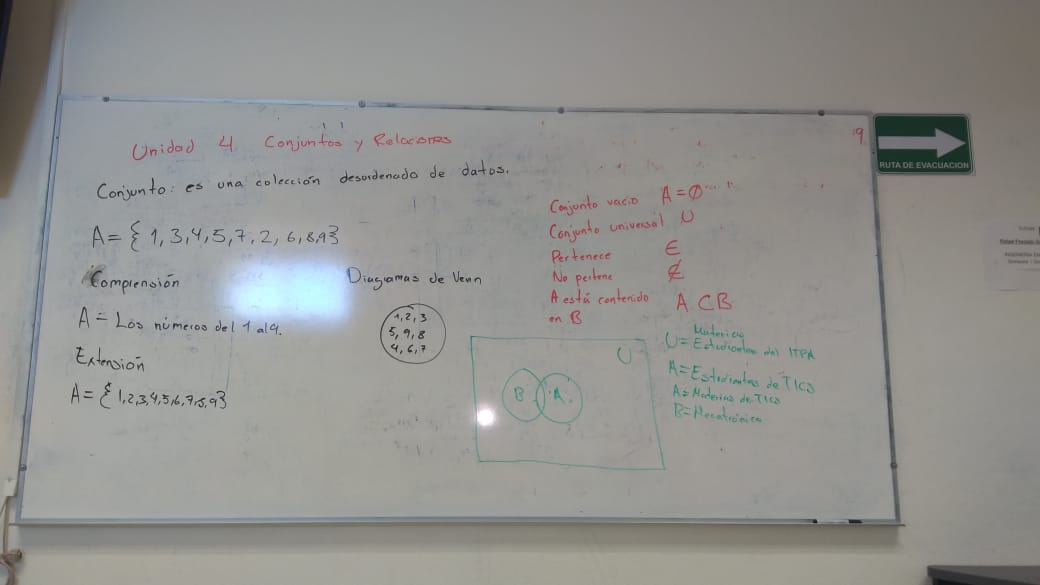 Unidad 4 Conjuntos y Relaciones
Conjunto: es una colección desordenada de datos.
A = { 1, 3, 4, 5, 7, 2, 6, 8, 9}
Comprensión
A = Los números del 1 al 9.
Extensión
A = { 1, 2, 3, 4, 5, 6, 7, 8, 9}
Diagramas de Venn
1, 2, 3
5, 9, 8
4, 6, 7
Conjunto vacio A = Ø
Conjunto universal U
Pertenece ∈
No pertene ∉
A está contenido A ⊂ B
en B
U
B A
Materias
U = Estudiantes del ITPA
A = Estudiantes de TICS
A = Materias de TICS
B = Mecatrónica
9
RUTA DE EVACUACIÓN